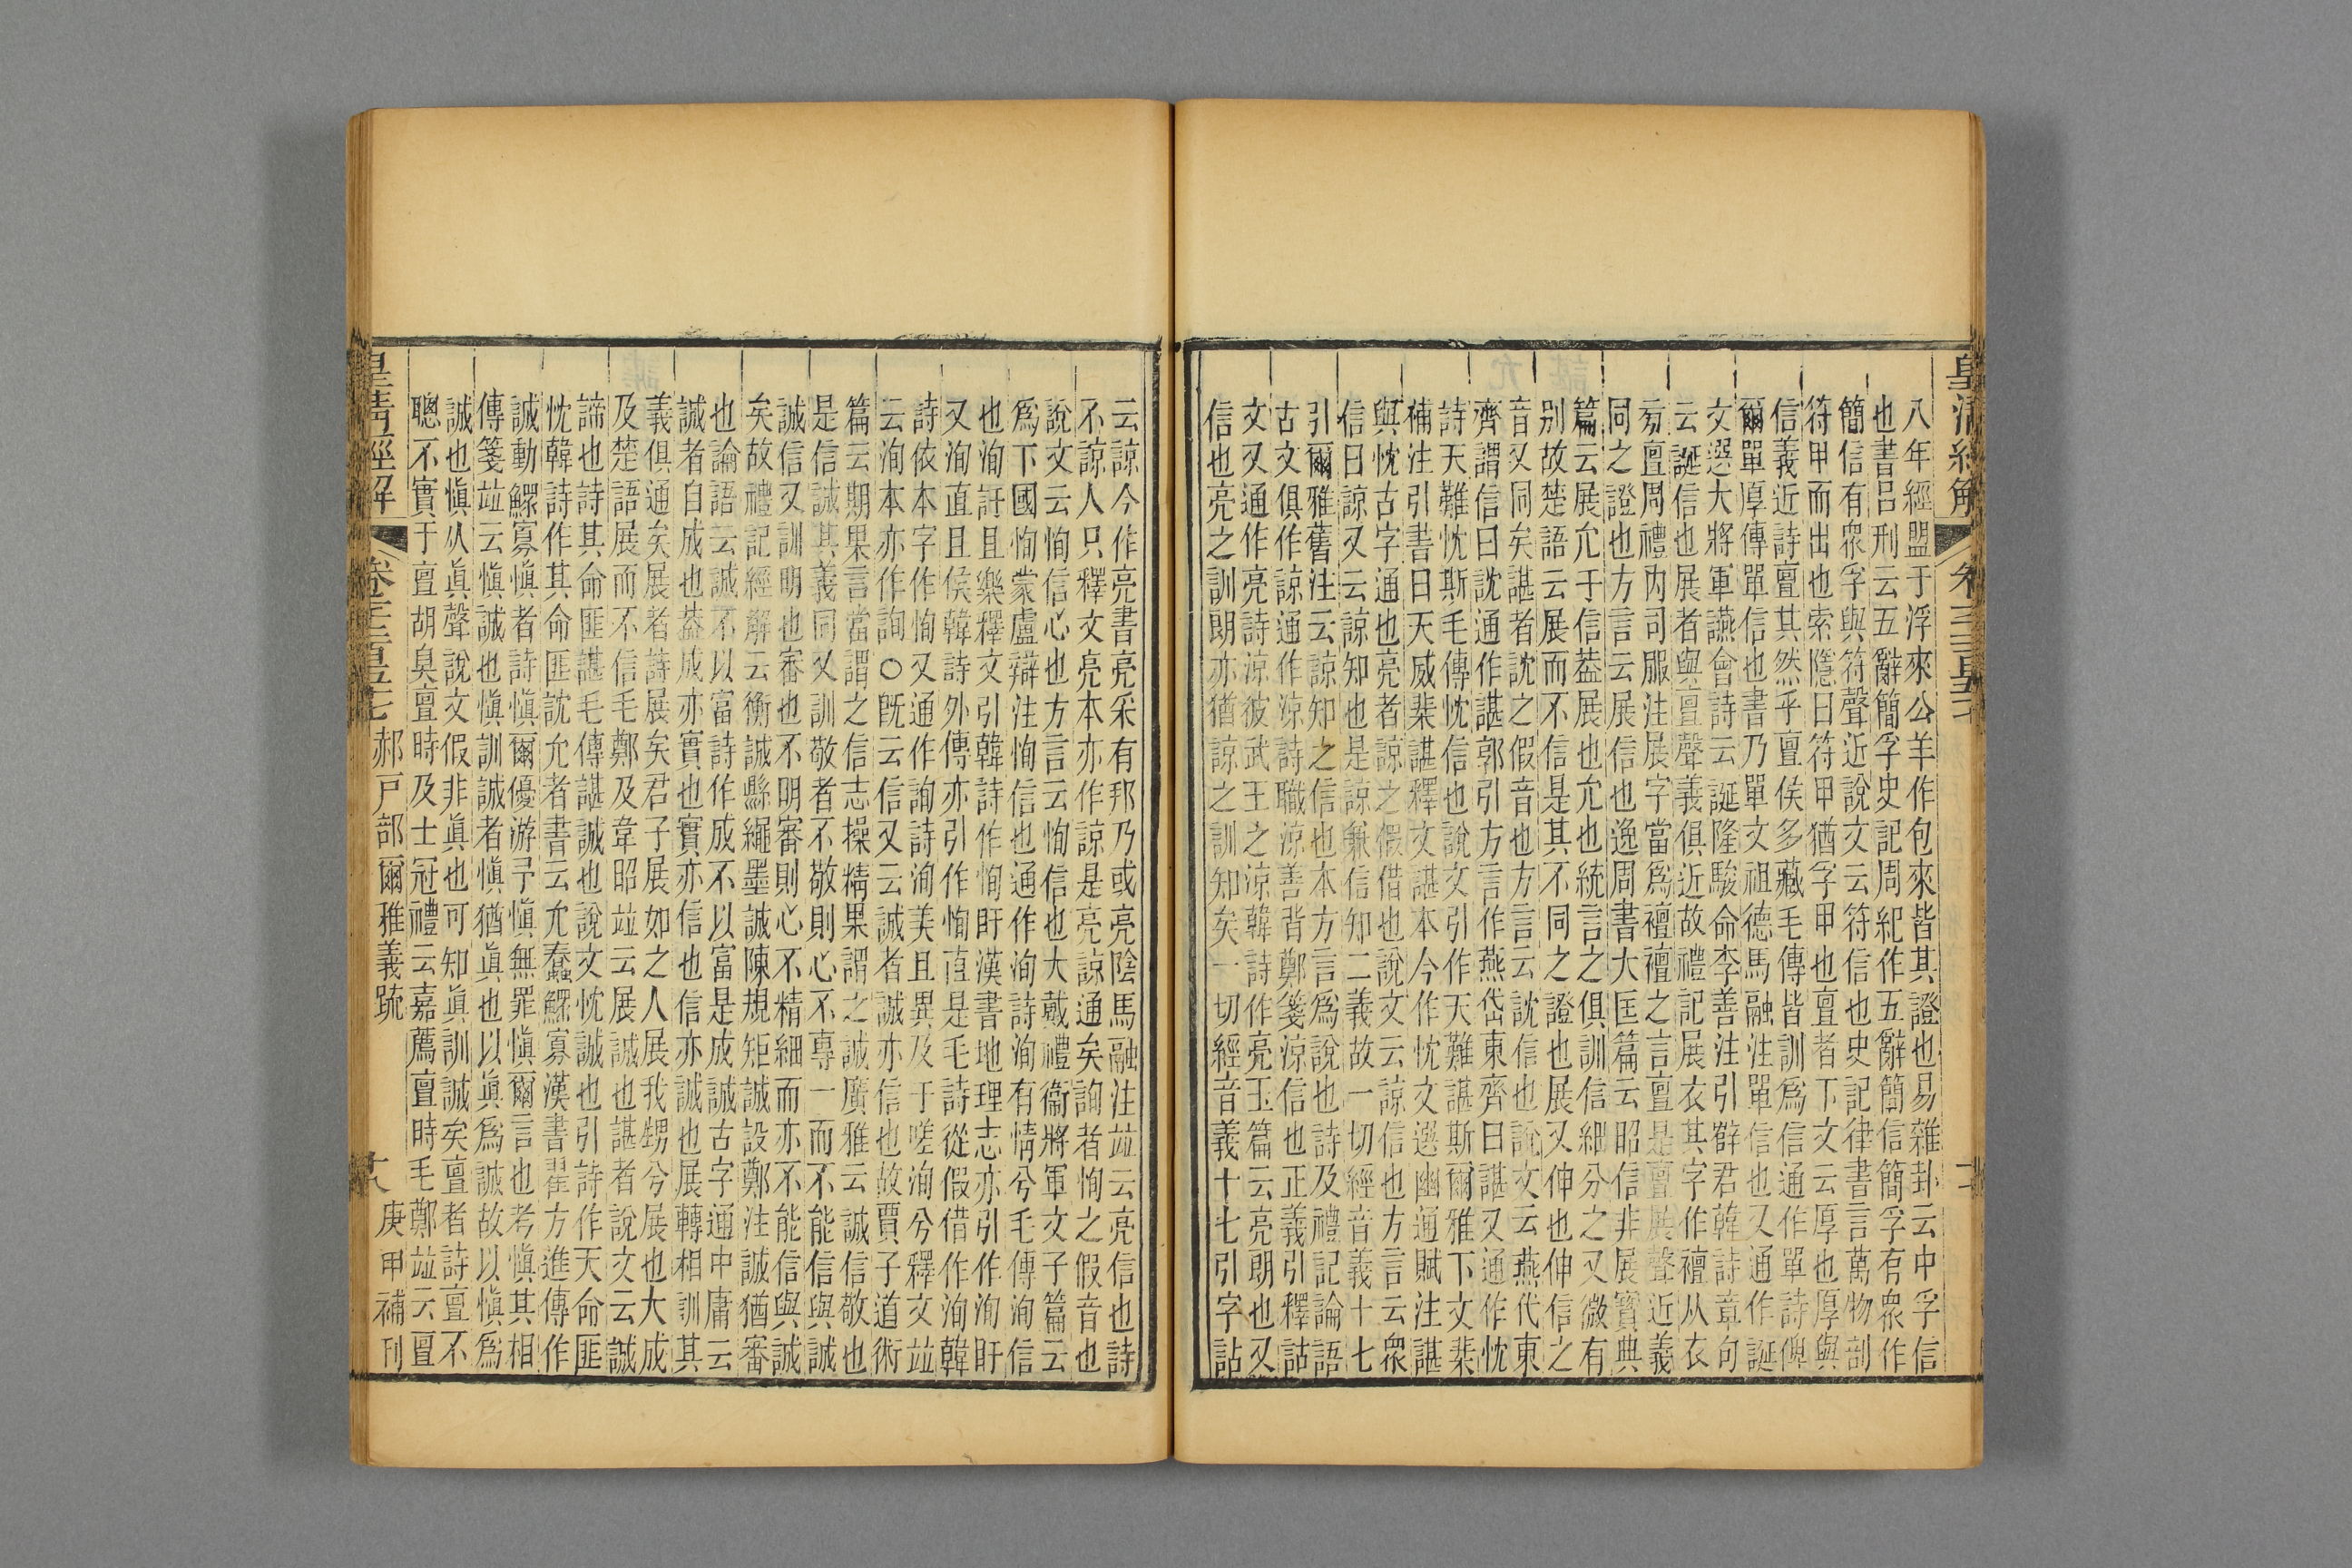 皇清經解
八年經盟于浮來公羊作包來皆其證也易雜卦云中孚信
也書呂刑云五辭簡孚史記周紀作五辭簡信簡孚有衆作
簡信有衆孚與符聲近說文云符信也史記律書言萬物剖
符甲而出也索隱曰符甲猶孚甲也亶者下文云厚也厚與
信義近詩亶其然乎亶侯多藏毛傳皆訓爲信通作單詩俾
爾單厚傳單信也書乃單文祖德馬融注單信也又通作誕
文選大將軍讌會詩云誕隆駿命李善注引薛君韓詩章句
云誕信也展者與亶聲義俱近故禮記展衣其字作襢从衣
旁亶周禮內司服注展字當爲襢襢之言亶是亶展聲近義
同之證也方言云展信也逸周書大匡篇云昭信非展寶典
篇云展允于信葢展也允也統言之俱訓信細分之又微有
別故楚語云展而不信是其不同之證也展又伸也伸信之
音又同矣諶者訦之假音也方言云訦信也說文云燕代東
齊謂信曰訦通作諶郭引方言作燕岱東齊曰諶又通作忱
詩天難忱斯毛傳忱信也說文引作天難諶斯爾雅下文棐
補注引書曰天威棐諶釋文諶本今作忱文選幽通賦注諶
與忱古字通也亮者諒之假借也說文云諒信也方言云衆
信曰諒又云諒知也是諒兼信知二義故一切經音義十七
引爾雅舊注云諒知之信也本方言爲說也詩及禮記論語
古文俱作諒通作涼詩職涼善背鄭箋涼信也正義引釋詁
文又通作亮詩涼彼武王之涼韓詩作亮玉篇云亮朗也又
信也亮之訓朗亦猶諒之訓知矣一切經音義十七引字詁
云諒今作亮書亮采有邦乃或亮陰馬融注竝云亮信也詩
不諒人只釋文亮本亦作諒是亮諒通矣詢者恂之假音也
說文云恂信心也方言云恂信也大戴禮衞將軍文子篇云
爲下國恂蒙盧辯注恂信也通作洵詩洵有情兮毛傳洵信
也洵訏且樂釋文引韓詩作恂盱漢書地理志亦引作洵盱
又洵直且侯韓詩外傳亦引作恂直是毛詩從假借作洵韓
詩依本字作恂又通作詢詩洵美且異及于嗟洵兮釋文竝
云洵本亦作詢○旣云信又云誠者誠亦信也故賈子道術
篇云期果言當謂之信志操精果謂之誠廣雅云誠信敬也
是信誠其義同又訓敬者不敬則心不專一而不能信與誠
誠信又訓明也審也不明審則心不精細而亦不能信與誠
矣故禮記經解云衡誠縣繩墨誠陳規矩誠設鄭注誠猶審
也論語云誠不以富詩作成不以富是成誠古字通中庸云
誠者自成也葢成亦實也實亦信也信亦誠也展轉相訓其
義俱通矣展者詩展矣君子展如之人展我甥兮展也大成
及楚語展而不信毛鄭及韋昭竝云展誠也諶者說文云誠
諦也詩其命匪諶毛傳諶誠也說文忱誠也引詩作天命匪
忱韓詩作其命匪訦允者書云允蠢鰥寡漢書翟方進傳作
誠動鰥寡愼者詩愼爾優游予愼無罪愼爾言也考愼其相
傳箋竝云愼誠也愼訓誠者愼猶眞也以眞爲誠故以愼爲
誠也愼从眞聲說文假非眞也可知眞訓誠矣亶者詩亶不
聰不實于亶胡臭亶時及士冠禮云嘉薦亶時毛鄭竝云亶
皇清經解 郝戶部爾雅義疏 庚申補刊